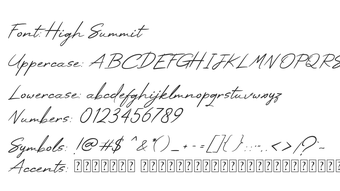 Font: High Summit
Uppercase: ABCDEFGHIJKLMNOPQRS
Lowercase: abcdefghijklmnopqrstuvwxyz
Numbers: 0123456789
Symbols: !@#$ ^&*() _ + - = [] {} : ; " ' , . < > / ? : ~
Accents: